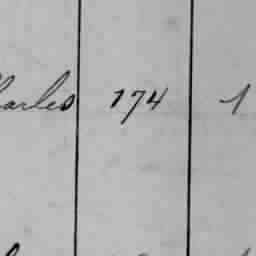 harles 174 1